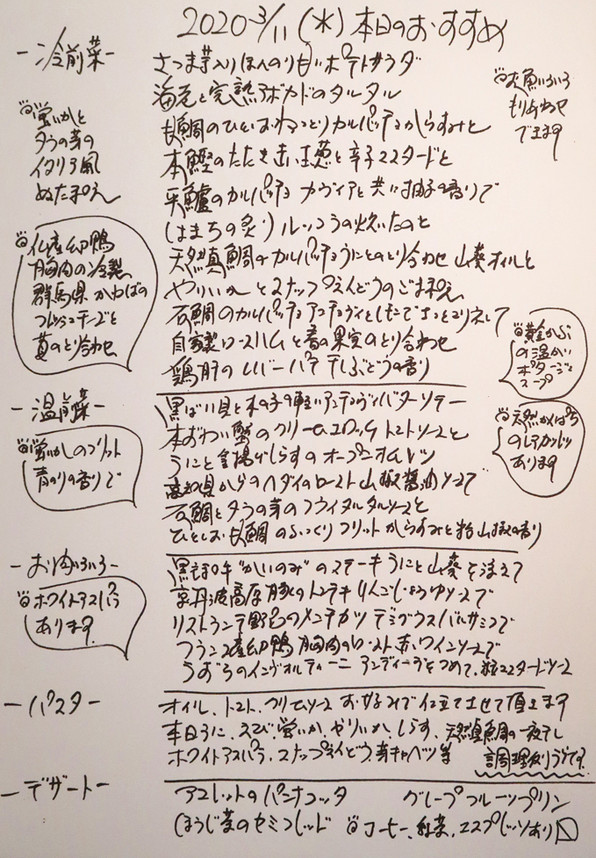 2020 3/11 (水) 本日のおすすめ
ー冷前菜ー
さつま芋入りほんのり甘いポテトサラダ
海老と完熟アボカドのタルタル
長鯛のひとしおカルパッチョ からすみと
本鰹のたたき 赤玉葱と辛子マスタードと
平鱸のカルパッチョ キャヴィアと共に 柚子の香りで
(はまちの炙り) ルッコラの
天然真鯛のカルパッチョ うにとのとり合わせ 山葵オイルと
やりいかとスナップえんどうのごま和え
石鯛のカルパッチョ アンチョヴィと
自家製ロースハムと春の果実のとり合わせ
鶏肝のレバーパテ 干しぶどうの香り
蛍いかと
タラの芽の
イタリア風
ぬた和え
仏産幼鴨
胸肉の冷製
群馬県 かわばの
フレッシュチーズと
苺のとり合わせ
お魚いろいろ
もりあわせ
できます
黄金かぶ
の温かい
ポタージュ
スープ
ー温前菜ー
黒ばい貝と木の子の軽いアンチョヴィバターソテー
本ずわい蟹のクリームコロッケ トマトソースと
うにと釜揚げしらすのオープンオムレツ
高知県からのヘダイのロースト 山椒醤油ソースで
石鯛とタラの芽のフライ タルタルソースと
ひとしお長鯛のふっくりフリット からすみと粉山椒の香り
蛍いかのフリット
青のりの香りで
天然かんぱち
のレアカツレツ
あります
ーお肉いろいろー
黒毛和牛"かいのみ"のステーキ うにと山葵を添えて
京丹波高原豚のトンテキ りんごしょうゆソースで
リストランテ野呂のメンチカツ デミグラスバルサミコで
フランス産幼鴨胸肉のロースト 赤ワインソースで
うずらのインヴォルティーニ アンディーヴをつめて、粒マスタードソース
ホワイトアスパラ
あります。
ーパスター
オイル、トマト、クリームソース お好みで仕立てさせて頂きます
本日うに、えび、蛍いか、やりいか、しらす、天然真鯛の一夜干し
ホワイトアスパラ、スナップえんどう、春キャベツ等 調理法いろいろです。
ーデザートー
アマレットのパンナコッタ グレープフルーツプリン
ほうじ茶のセミフレッド コーヒー、紅茶、エスプレッソあり